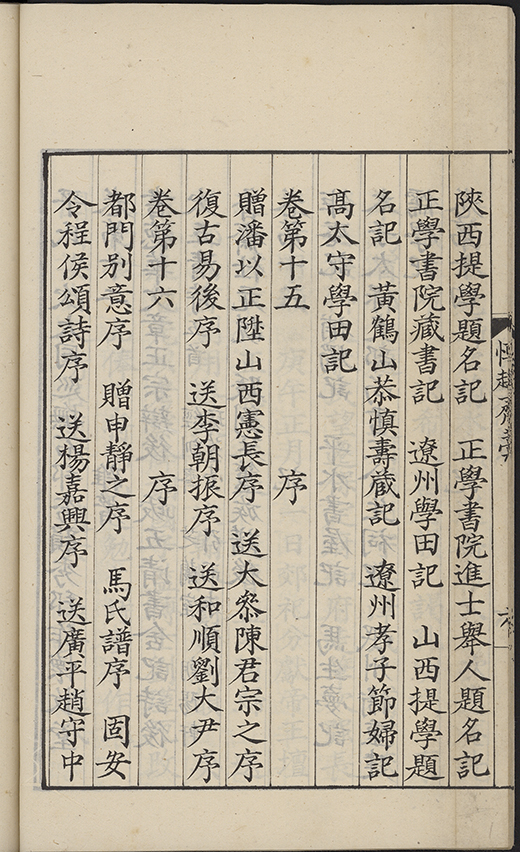 陝西提學題名記　正學書院進士舉人題名記
正學書院藏書記　遼州學田記　山西提學題
名記　黃鶴山恭愼壽藏記　遼州孝子節婦記
高太守學田記
卷第十五　　　序
贈潘以正陞山西憲長序　送大叅陳君宗之序
復古易後序　送李朝振序　送和順劉大尹序
卷第十六　　　序
都門别意序　贈申靜之序　馬氏譜序　固安
令程侯頌詩序　送楊嘉興序　送廣平趙守中